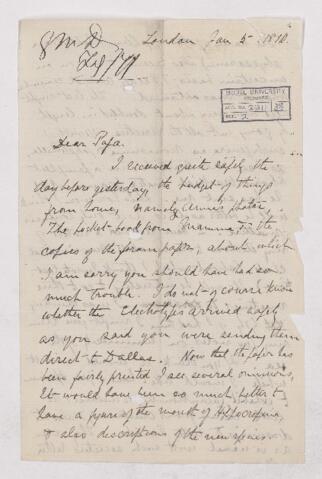 G M D
London Jan 5 1870.
McGILL UNIVERSITY
ARCHIVES
ACC. NO.
REF. 2
Dear Papa.
I received quite safely the
day before yesterday, the budget of things
from home, namely Annie's photos,
The pocket-book from Mamma, & the
copies of the foram paper, about which
I am sorry you should have had so
much trouble. I do not of course know
whether the Electrotypes arrived safely
as you said you were sending them
direct to Dallas. Now that the paper has
been fairly printed I see several omissions,
It would have been so much better to
have a figure of the mouth of
& also descriptions of the new species